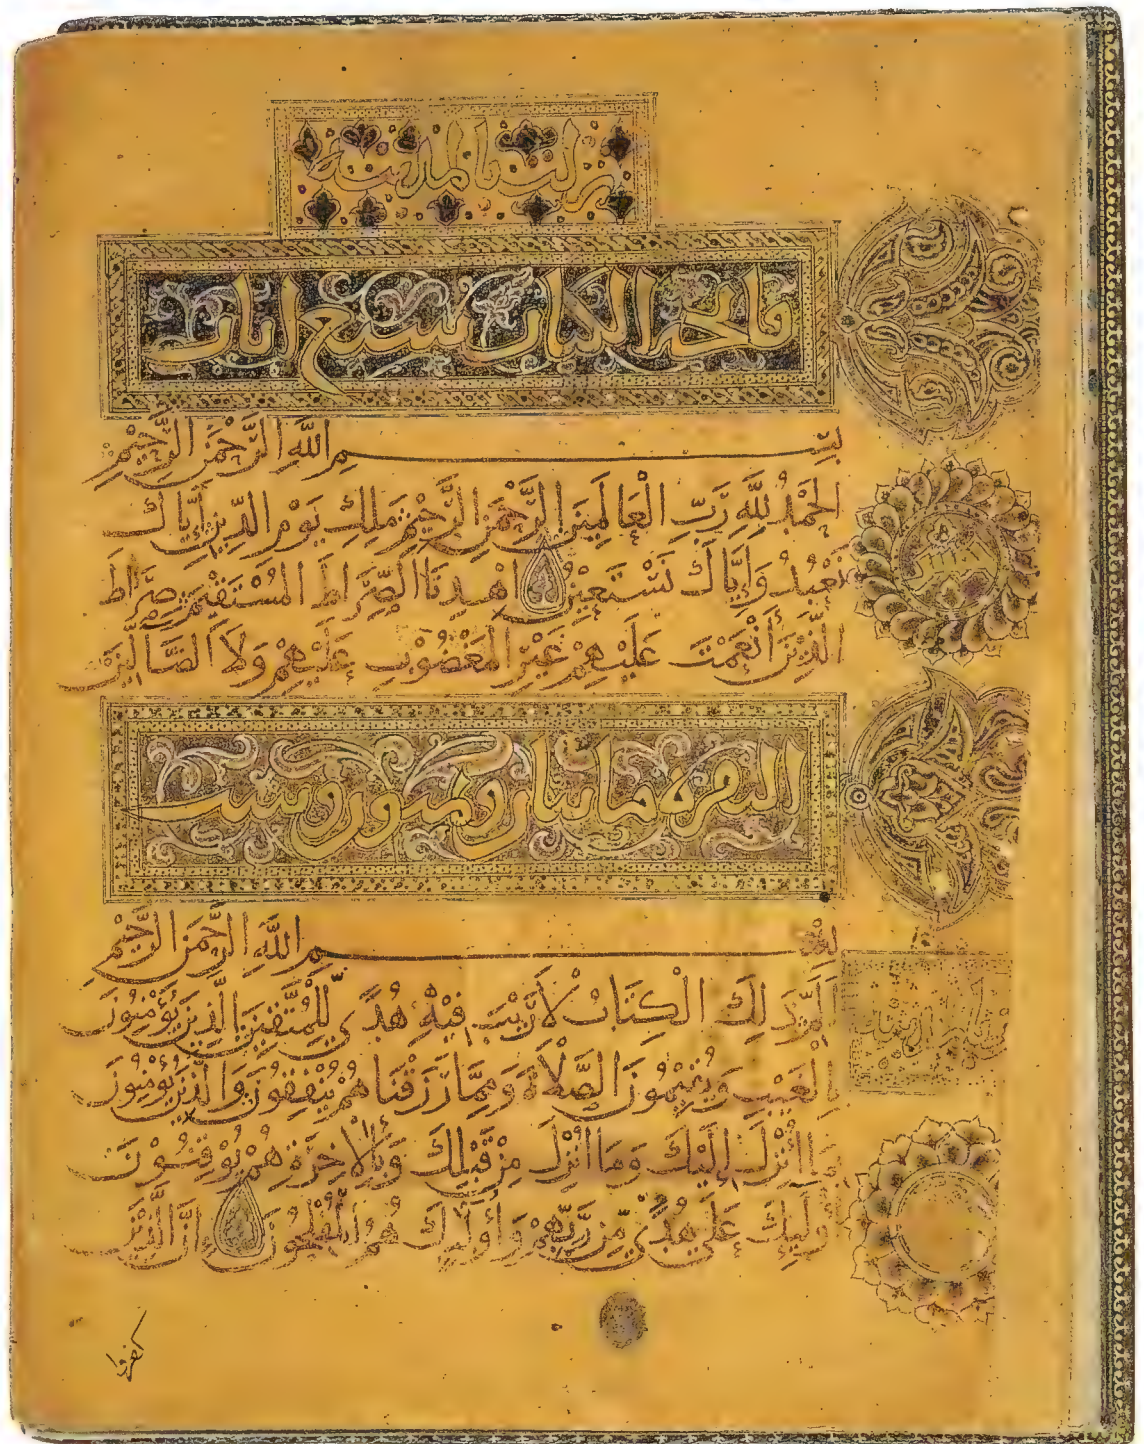 نزلت بالمدينة
فاتحة الكتاب سبع ايات
بِسْمِ اللَّهِ الرَّحْمَنِ الرَّحِيْمِ
الْحَمْدُ لِلَّهِ رَبِّ الْعَالَمِيْنَ الرَّحْمَنِ الرَّحِيْمِ مَلِكِ يَوْمِ الدِّيْنِ إِيَّاكَ
نَعْبُدُ وَإِيَّاكَ نَسْتَعِيْنُ اهْدِنَا الصِّرَاطَ الْمُسْتَقِيْمَ صِرَاطَ
الَّذِيْنَ أَنْعَمْتَ عَلَيْهِمْ غَيْرِ الْمَغْضُوْبِ عَلَيْهِمْ وَلَا الضَّالِّيْنَ
البقرة مايتان وثمنون وست
بِسْمِ اللَّهِ الرَّحْمَنِ الرَّحِيْمِ
الَمّ ذَلِكَ الْكِتَابُ لَا رَيْبَ فِيْهِ هُدًى لِّلْمُتَّقِيْنَ الَّذِيْنَ يُؤْمِنُوْنَ
بِالْغَيْبِ وَيُقِيْمُوْنَ الصَّلَاةَ وَمِمَّا رَزَقْنَاهُمْ يُنْفِقُوْنَ وَالَّذِيْنَ يُؤْمِنُوْنَ
بِمَا أُنْزِلَ إِلَيْكَ وَمَا أُنْزِلَ مِنْ قَبْلِكَ وَبِالْآخِرَةِ هُمْ يُوْقِنُوْنَ
أُولَئِكَ عَلَى هُدًى مِّنْ رَّبِّهِمْ وَأُولَئِكَ هُمُ الْمُفْلِحُوْنَ إِنَّ الَّذِيْنَ
كفروا